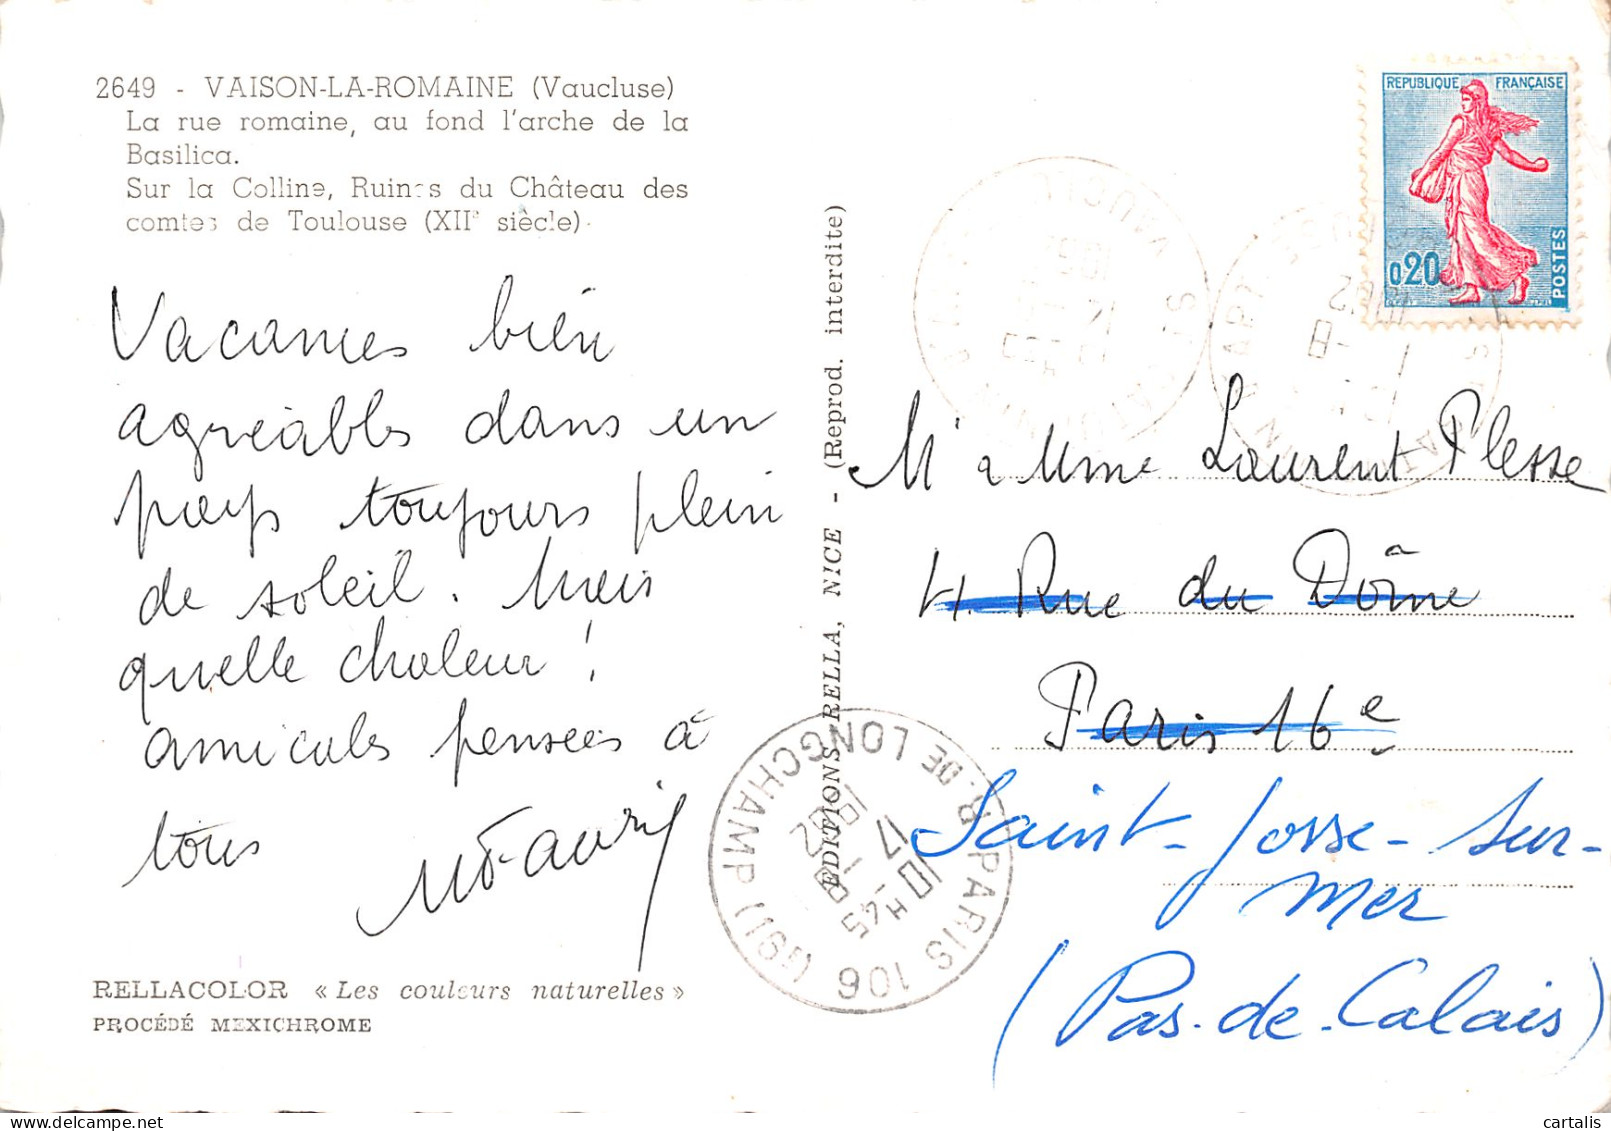 2649 - VAISON-LA-ROMAINE (Vaucluse)
La rue romaine, au fond l'arche de la
Basilica.
Sur la Colline, Ruines du Château des
comtes de Toulouse (XIIe siècle).
Vacances bien
agréables dans un
pays toujours plein
de soleil. Mais
quelle chaleur !
amicales pensées à
tous
RELLACOLOR « Les couleurs naturelles »
PROCÉDÉ MEXICHROME
EDITIONS RELLA, NICE - (Reprod. interdite)
REPUBLIQUE FRANÇAISE
0,20
POSTES
Mr & Mme Laurent Plesse
4 Rue du Dôme
Paris 16e
Saint-Josse-sur-
mer
(Pas-de-Calais)
PARIS 106 (191) R. DE LONGCHAMP
10 H 45
17 - 8
1962
cartalis